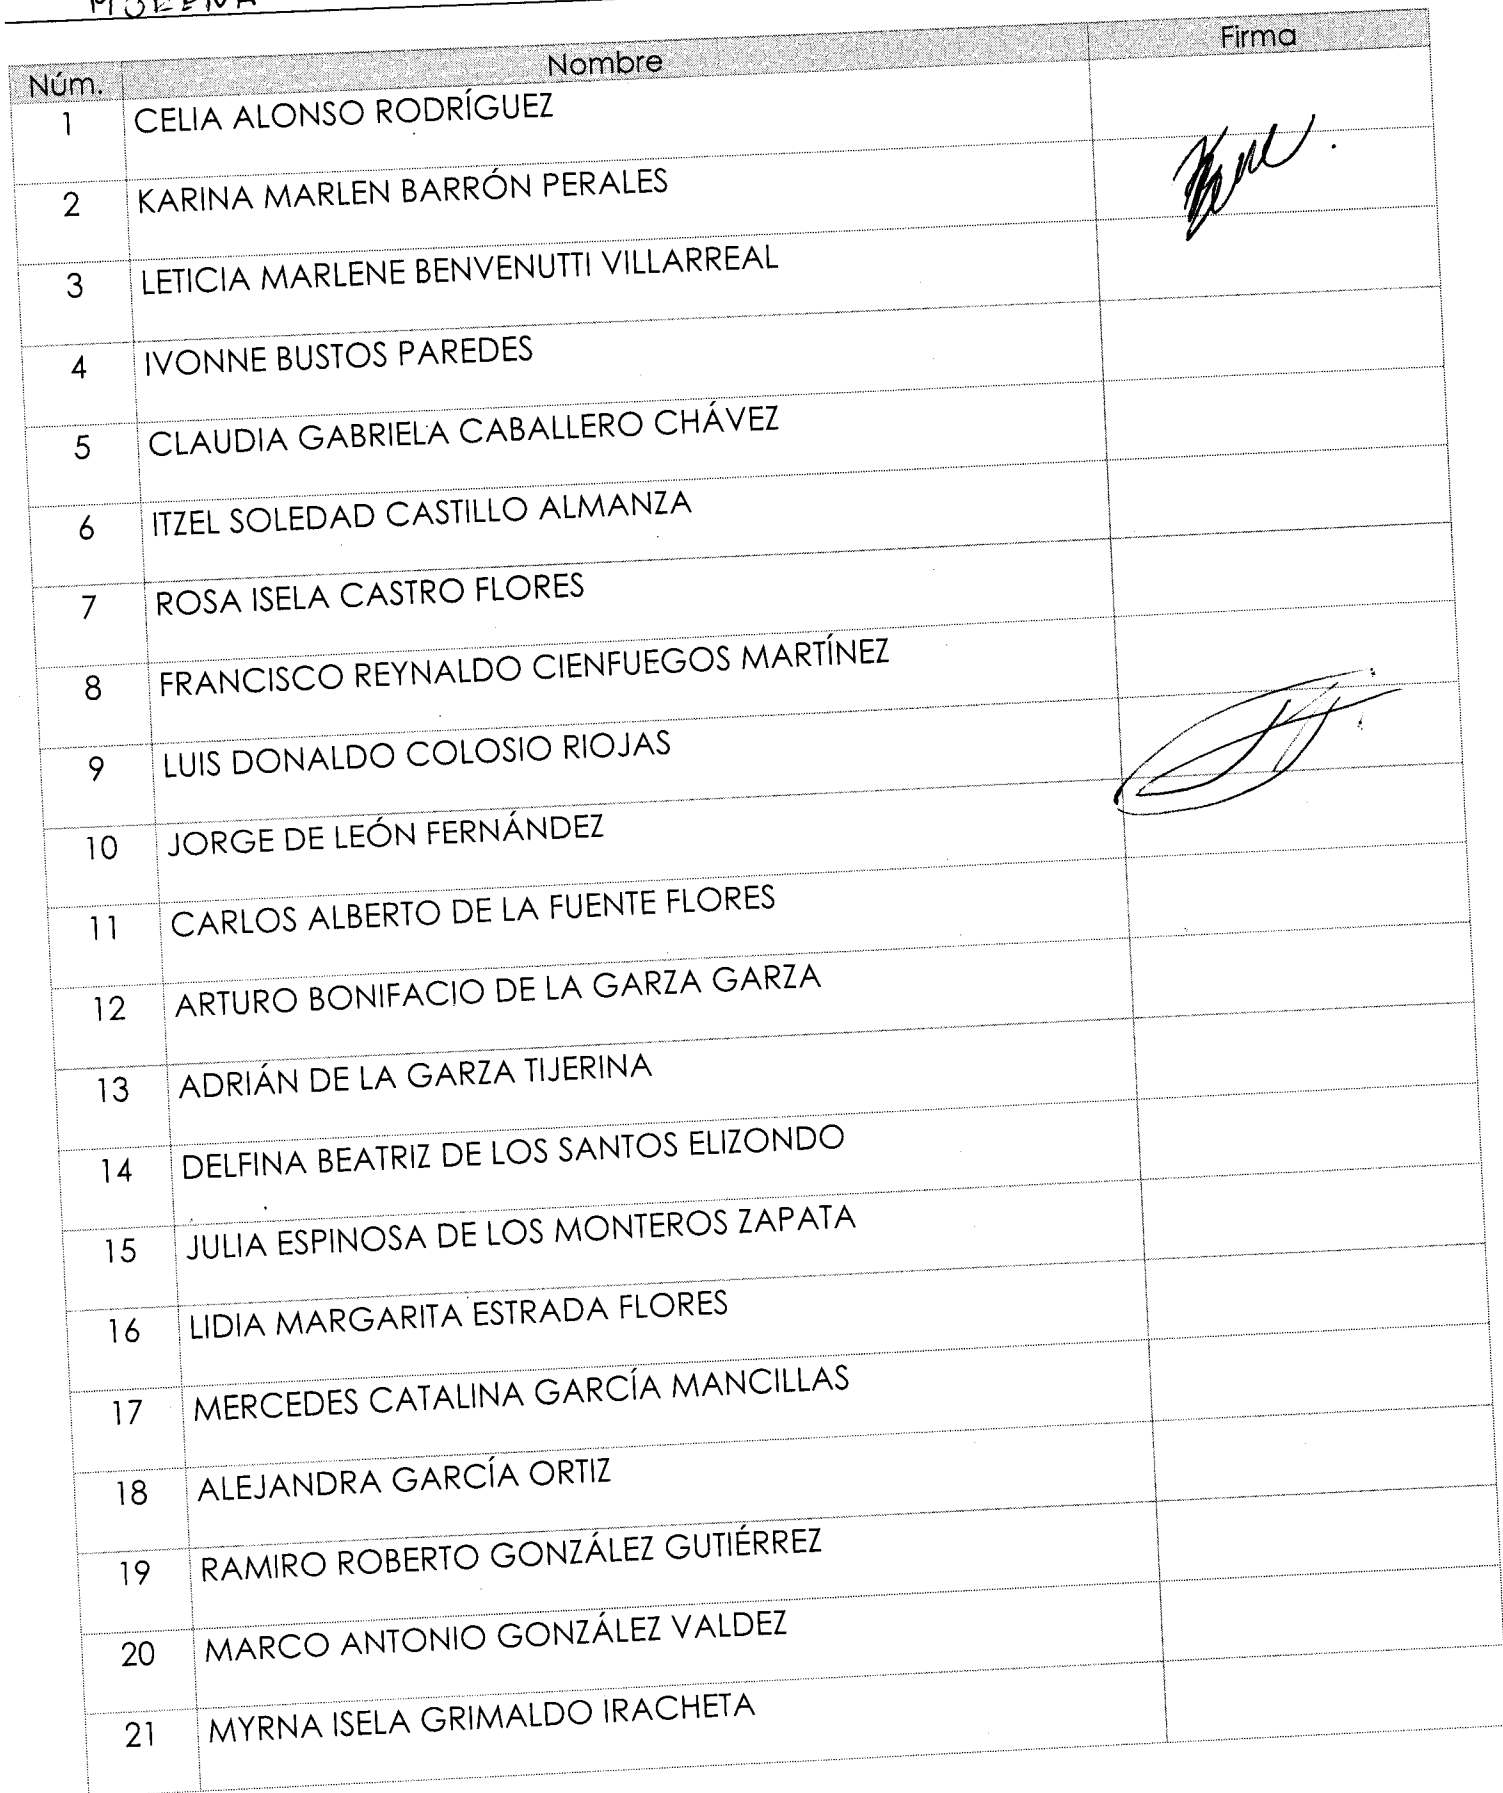 MORENA
Núm. Nombre Firma
1 CELIA ALONSO RODRÍGUEZ
2 KARINA MARLEN BARRÓN PERALES
3 LETICIA MARLENE BENVENUTTI VILLARREAL
4 IVONNE BUSTOS PAREDES
5 CLAUDIA GABRIELA CABALLERO CHÁVEZ
6 ITZEL SOLEDAD CASTILLO ALMANZA
7 ROSA ISELA CASTRO FLORES
8 FRANCISCO REYNALDO CIENFUEGOS MARTÍNEZ
9 LUIS DONALDO COLOSIO RIOJAS
10 JORGE DE LEÓN FERNÁNDEZ
11 CARLOS ALBERTO DE LA FUENTE FLORES
12 ARTURO BONIFACIO DE LA GARZA GARZA
13 ADRIÁN DE LA GARZA TIJERINA
14 DELFINA BEATRIZ DE LOS SANTOS ELIZONDO
15 JULIA ESPINOSA DE LOS MONTEROS ZAPATA
16 LIDIA MARGARITA ESTRADA FLORES
17 MERCEDES CATALINA GARCÍA MANCILLAS
18 ALEJANDRA GARCÍA ORTIZ
19 RAMIRO ROBERTO GONZÁLEZ GUTIÉRREZ
20 MARCO ANTONIO GONZÁLEZ VALDEZ
21 MYRNA ISELA GRIMALDO IRACHETA